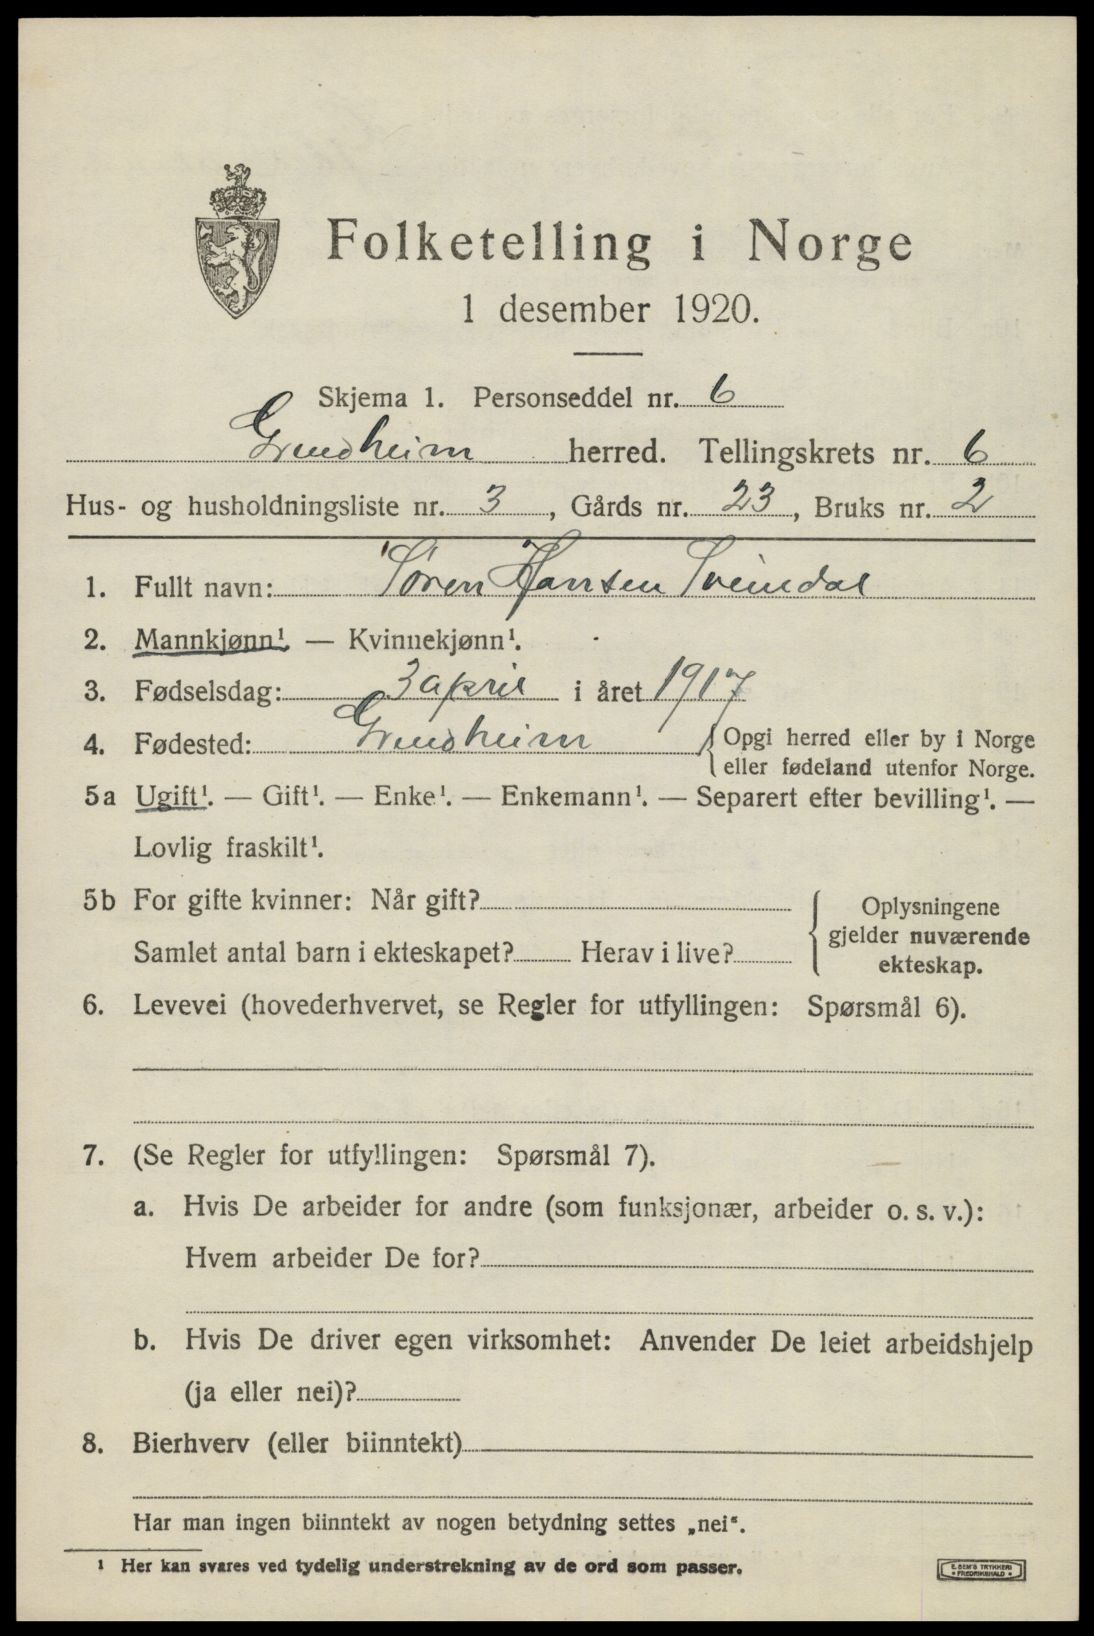 Folketelling i Norge
1 desember 1920.
Skjema 1. Personseddel nr. 6
Grindheim herred. Tellingskrets nr. 6
Hus- og husholdningsliste nr. 3, Gårds nr. 23, Bruks nr. 2
1. Fullt navn: Søren Hansen Sveindal
2. Mannkjønn¹. — Kvinnekjønn¹.
3. Fødselsdag: 3 april i året 1917
4. Fødested: Grindheim { Opgi herred eller by i Norge
eller fødeland utenfor Norge.
5a Ugift¹. — Gift¹. — Enke¹. — Enkemann¹. — Separert efter bevilling¹. —
Lovlig fraskilt¹.
5b For gifte kvinner: Når gift?
Samlet antal barn i ekteskapet? Herav i live?
{ Oplysningene
gjelder nuværende
ekteskap.
6. Levevei (hovederhvervet, se Regler for utfyllingen: Spørsmål 6).
7. (Se Regler for utfyllingen: Spørsmål 7).
a. Hvis De arbeider for andre (som funksjonær, arbeider o. s. v.):
Hvem arbeider De for?
b. Hvis De driver egen virksomhet: Anvender De leiet arbeidshjelp
(ja eller nei)?
8. Bierhverv (eller biinntekt)
Har man ingen biinntekt av nogen betydning settes „nei“.
¹ Her kan svares ved tydelig understrekning av de ord som passer.
E. SEM'S TRYKKERI
• FREDRIKSHALD •